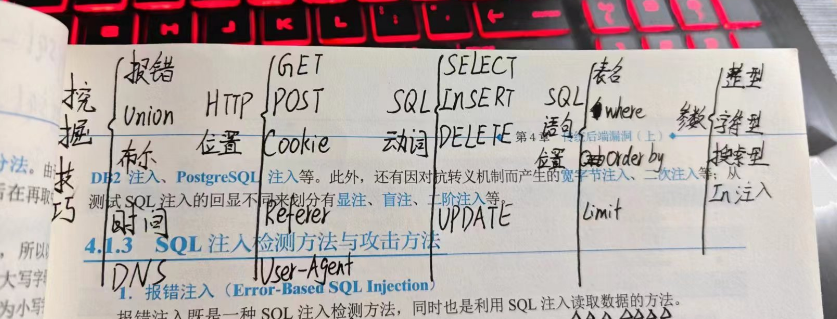 挖掘技巧
报错
Union
布尔
时间
DNS
HTTP
位置
GET
POST
Cookie
Referer
User-Agent
SQL
动词
SELECT
InSERT
DELETE
UPDATE
SQL
语句
位置
表名
where
Order by
Limit
参数
整型
字符型
搜索型
In注入
第4章 传统后端漏洞（上）◆
DB2 注入、PostgreSQL 注入等。此外，还有因对抗转义机制而产生的宽字节注入、二次注入等；从
测试 SQL 注入的回显不同来划分有显注、盲注、二阶注入等。
4.1.3 SQL 注入检测方法与攻击方法
1. 报错注入（Error-Based SQL Injection）
报错注入既是一种 SQL 注入检测方法，同时也是利用 SQL 注入读取数据的方法。
分法。由
后在再取
，所以
大写字
为小写